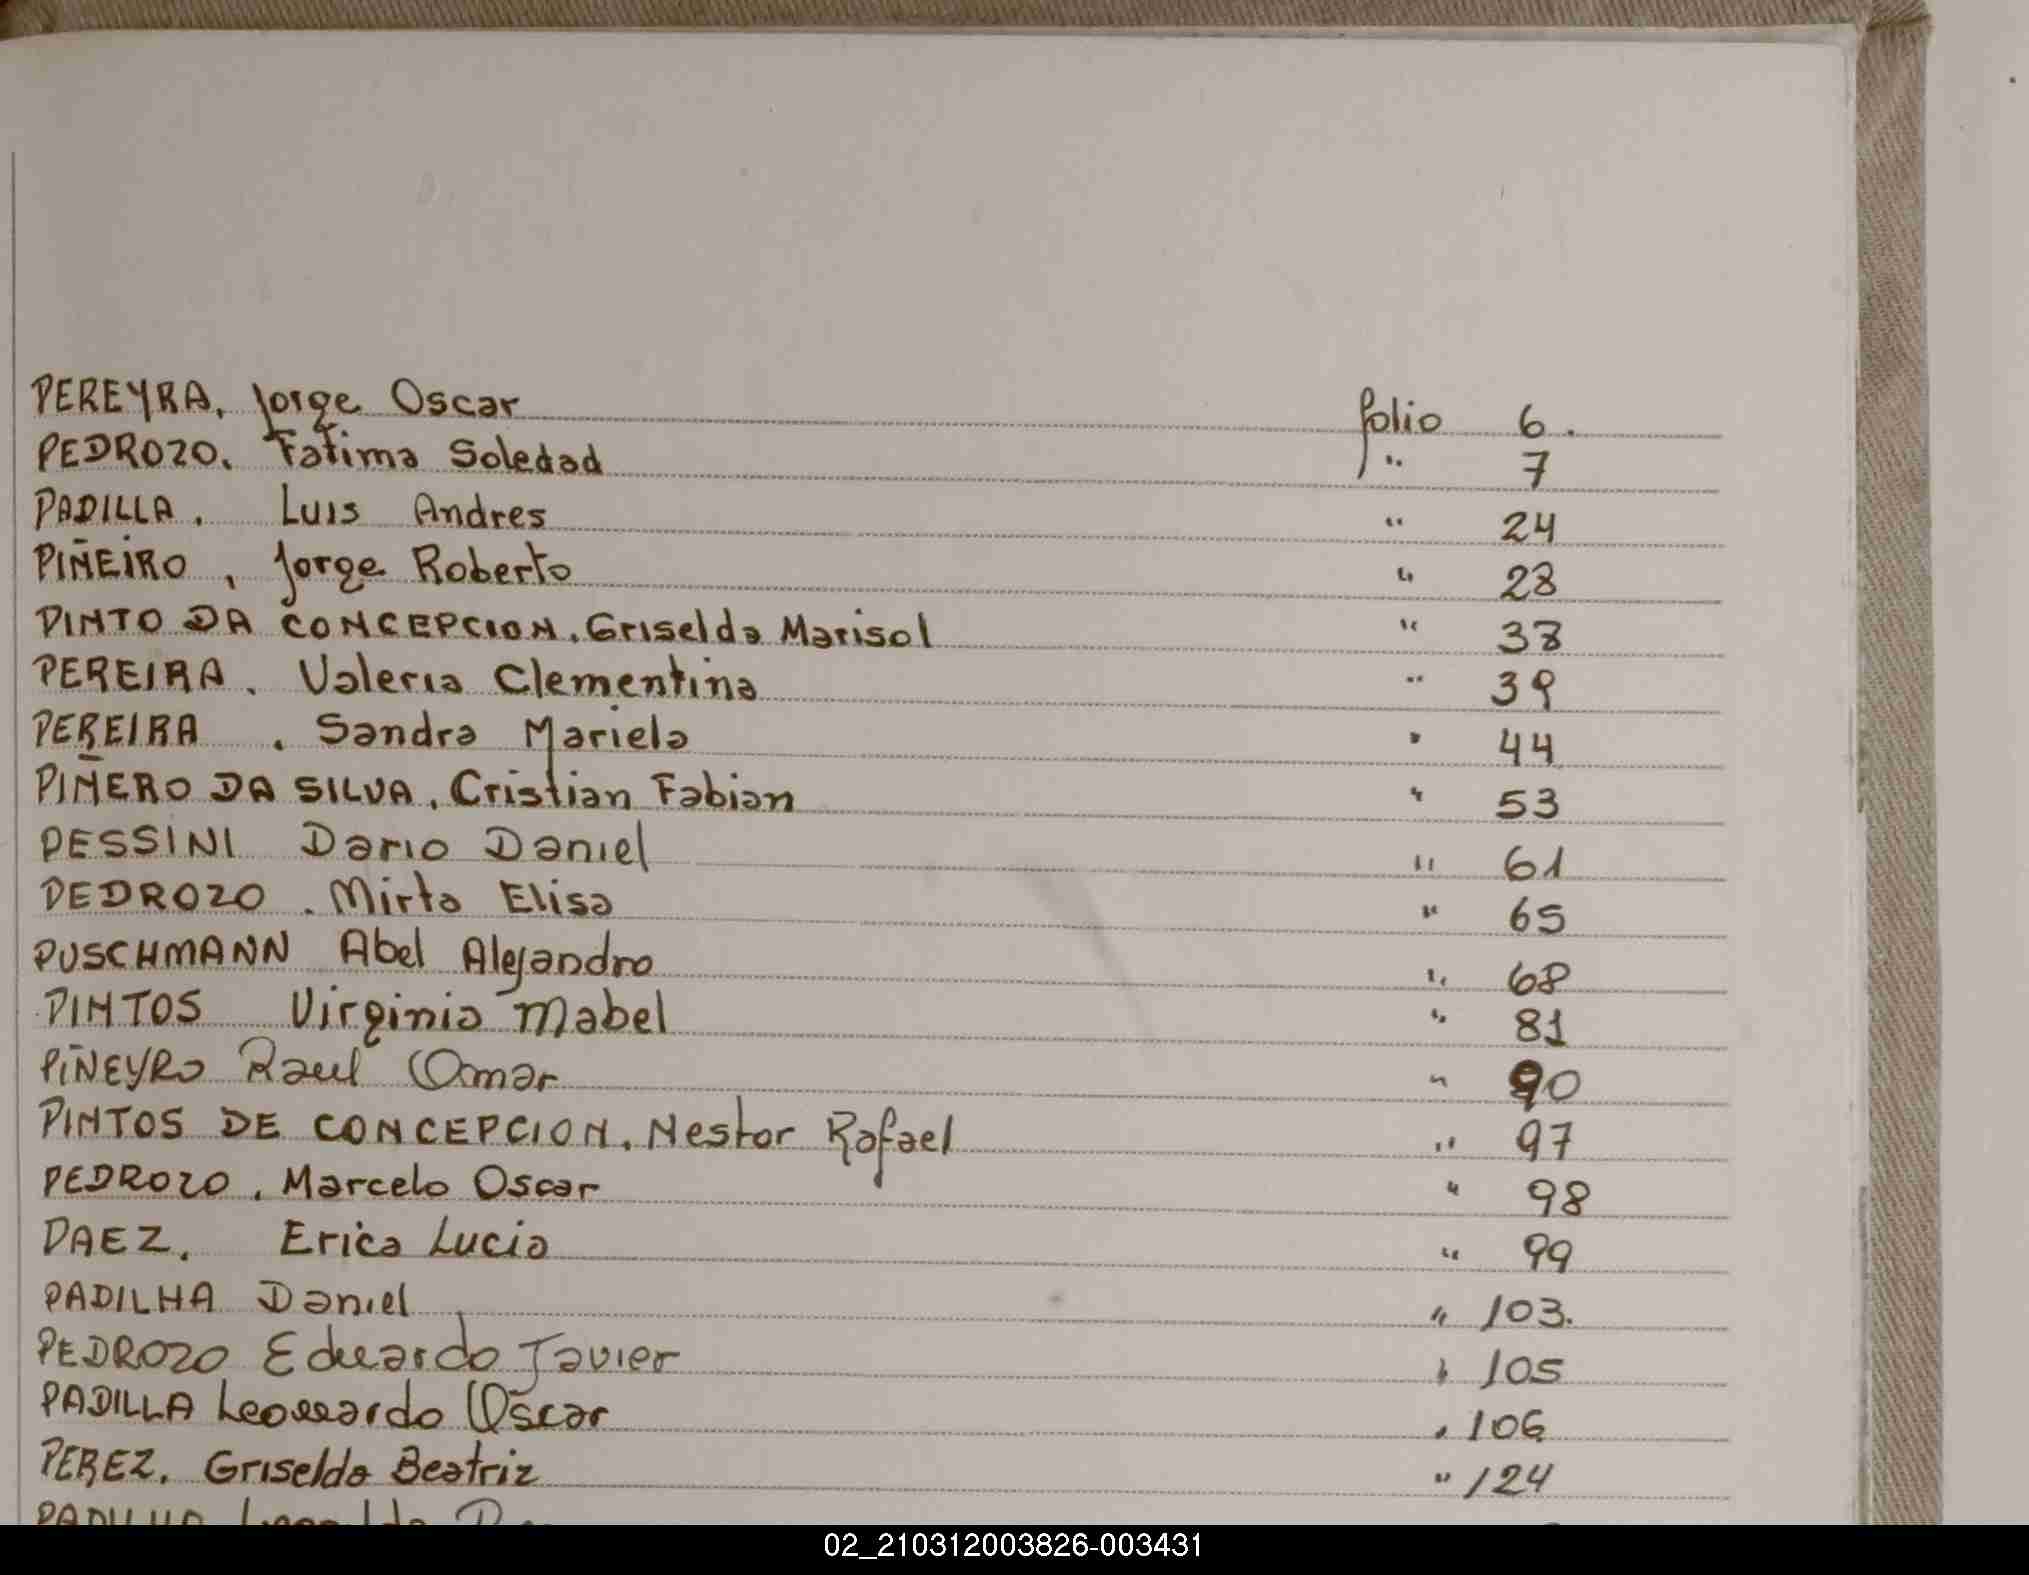 PEREYRA, Jorge Oscar folio 6.
PEDROZO, Fatima Soledad " 7
PADILLA, Luis Andres " 24
PIÑEIRO, Jorge Roberto " 28
PINTO DA CONCEPCION, Griselda Marisol " 38
PEREIRA, Valeria Clementina " 39
PEREIRA, Sandra Mariela " 44
PIÑERO DA SILVA, Cristian Fabian " 53
PESSINI Dario Daniel " 61
PEDROZO, Mirta Elisa " 65
PUSCHMANN Abel Alejandro " 68
PINTOS Virginia Mabel " 81
PIÑEYRO Raul Omar " 90
PINTOS DE CONCEPCION, Nestor Rafael " 97
PEDROZO, Marcelo Oscar " 98
PAEZ, Erica Lucia " 99
PADILHA Daniel " 103.
PEDROZO Eduardo Javier " 105
PADILLA Leonardo Oscar " 106
PEREZ, Griselda Beatriz " 124
02_210312003826-003431